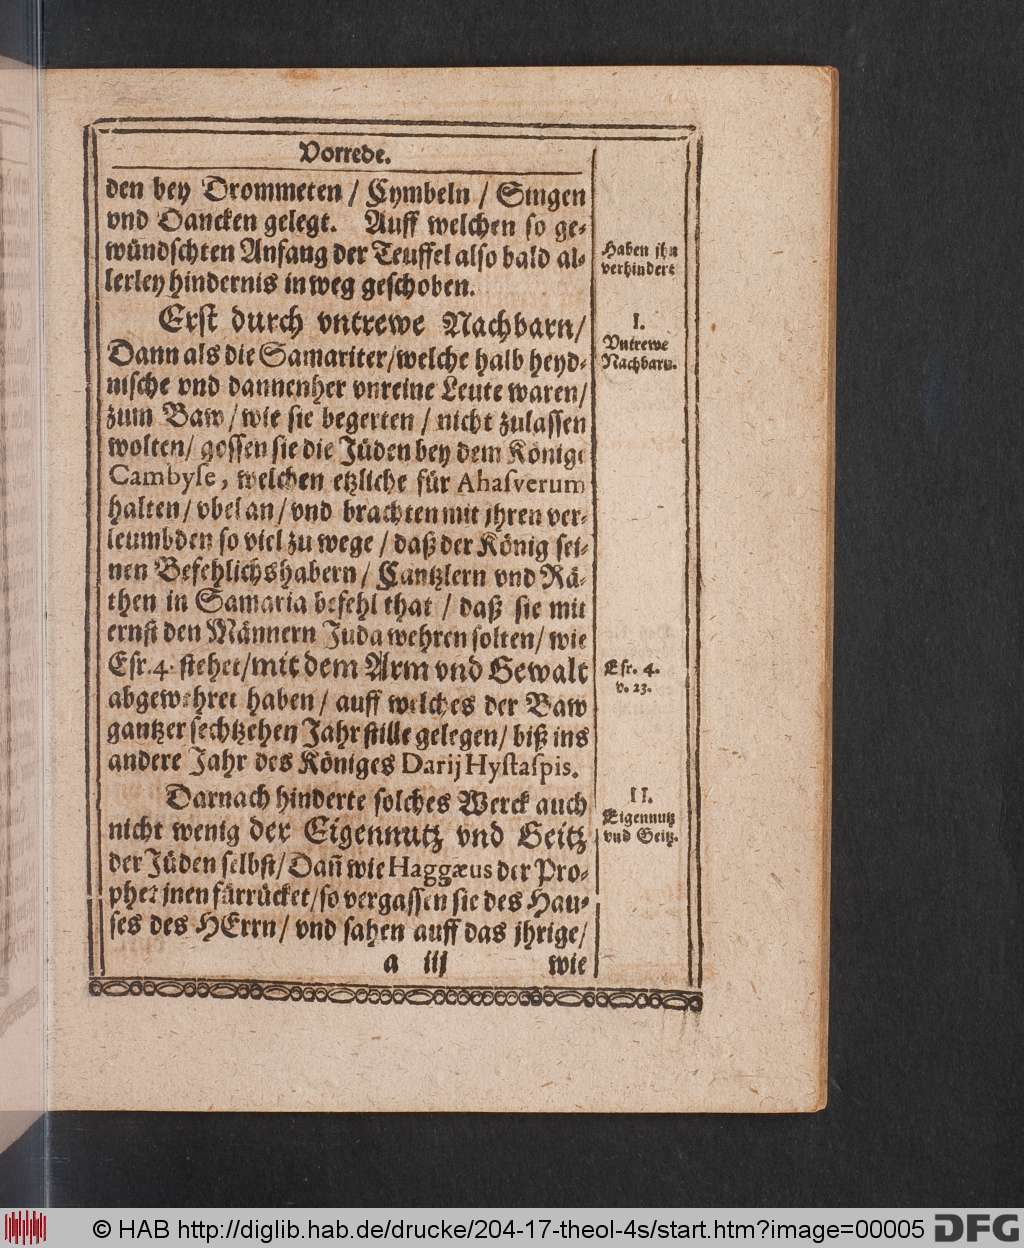 Vorrede.
den bey Drommeten / Cymbeln / Singen
vnd Dancken gelegt. Auff welchen so ge-
wündschten Anfang der Teuffel also bald al-
lerley hindernis in weg geschoben.
Haben jhn
verhindert
Erst durch vntrewe Nachbarn /
Dann als die Samariter / welche halb heyd-
nische vnd dannenher vnreine Leute waren /
zum Baw / wie sie begerten / nicht zulassen
wolten / gossen sie die Jüden bey dem Könige
Cambyse, welchen etzliche für Ahasverum
halten / vbel an / vnd brachten mit jhren ver-
leumbden so viel zu wege / daß der König sei-
nen Befehlichshabern / Cantzlern vnd Rä-
then in Samaria befehl that / daß sie mit
ernst den Männern Juda wehren solten / wie
Esr. 4. stehet / mit dem Arm vnd Gewalt
abgewehret haben / auff welches der Baw
gantzer sechtzehen Jahr stille gelegen / biß ins
andere Jahr des Königes Darij Hystaspis.
I.
Vntrewe
Nachbarn.
Esr. 4.
v. 23.
Darnach hinderte solches Werck auch
nicht wenig der Eigennutz vnd Geitz
der Jüden selbst / Dañ wie Haggæus der Pro-
phet jnen fürrücket / so vergassen sie des Hau-
ses des HErrn / vnd sahen auff das jhrige /
II.
Eigennutz
vnd Geitz.
a iij wie
© HAB http://diglib.hab.de/drucke/204-17-theol-4s/start.htm?image=00005 DFG